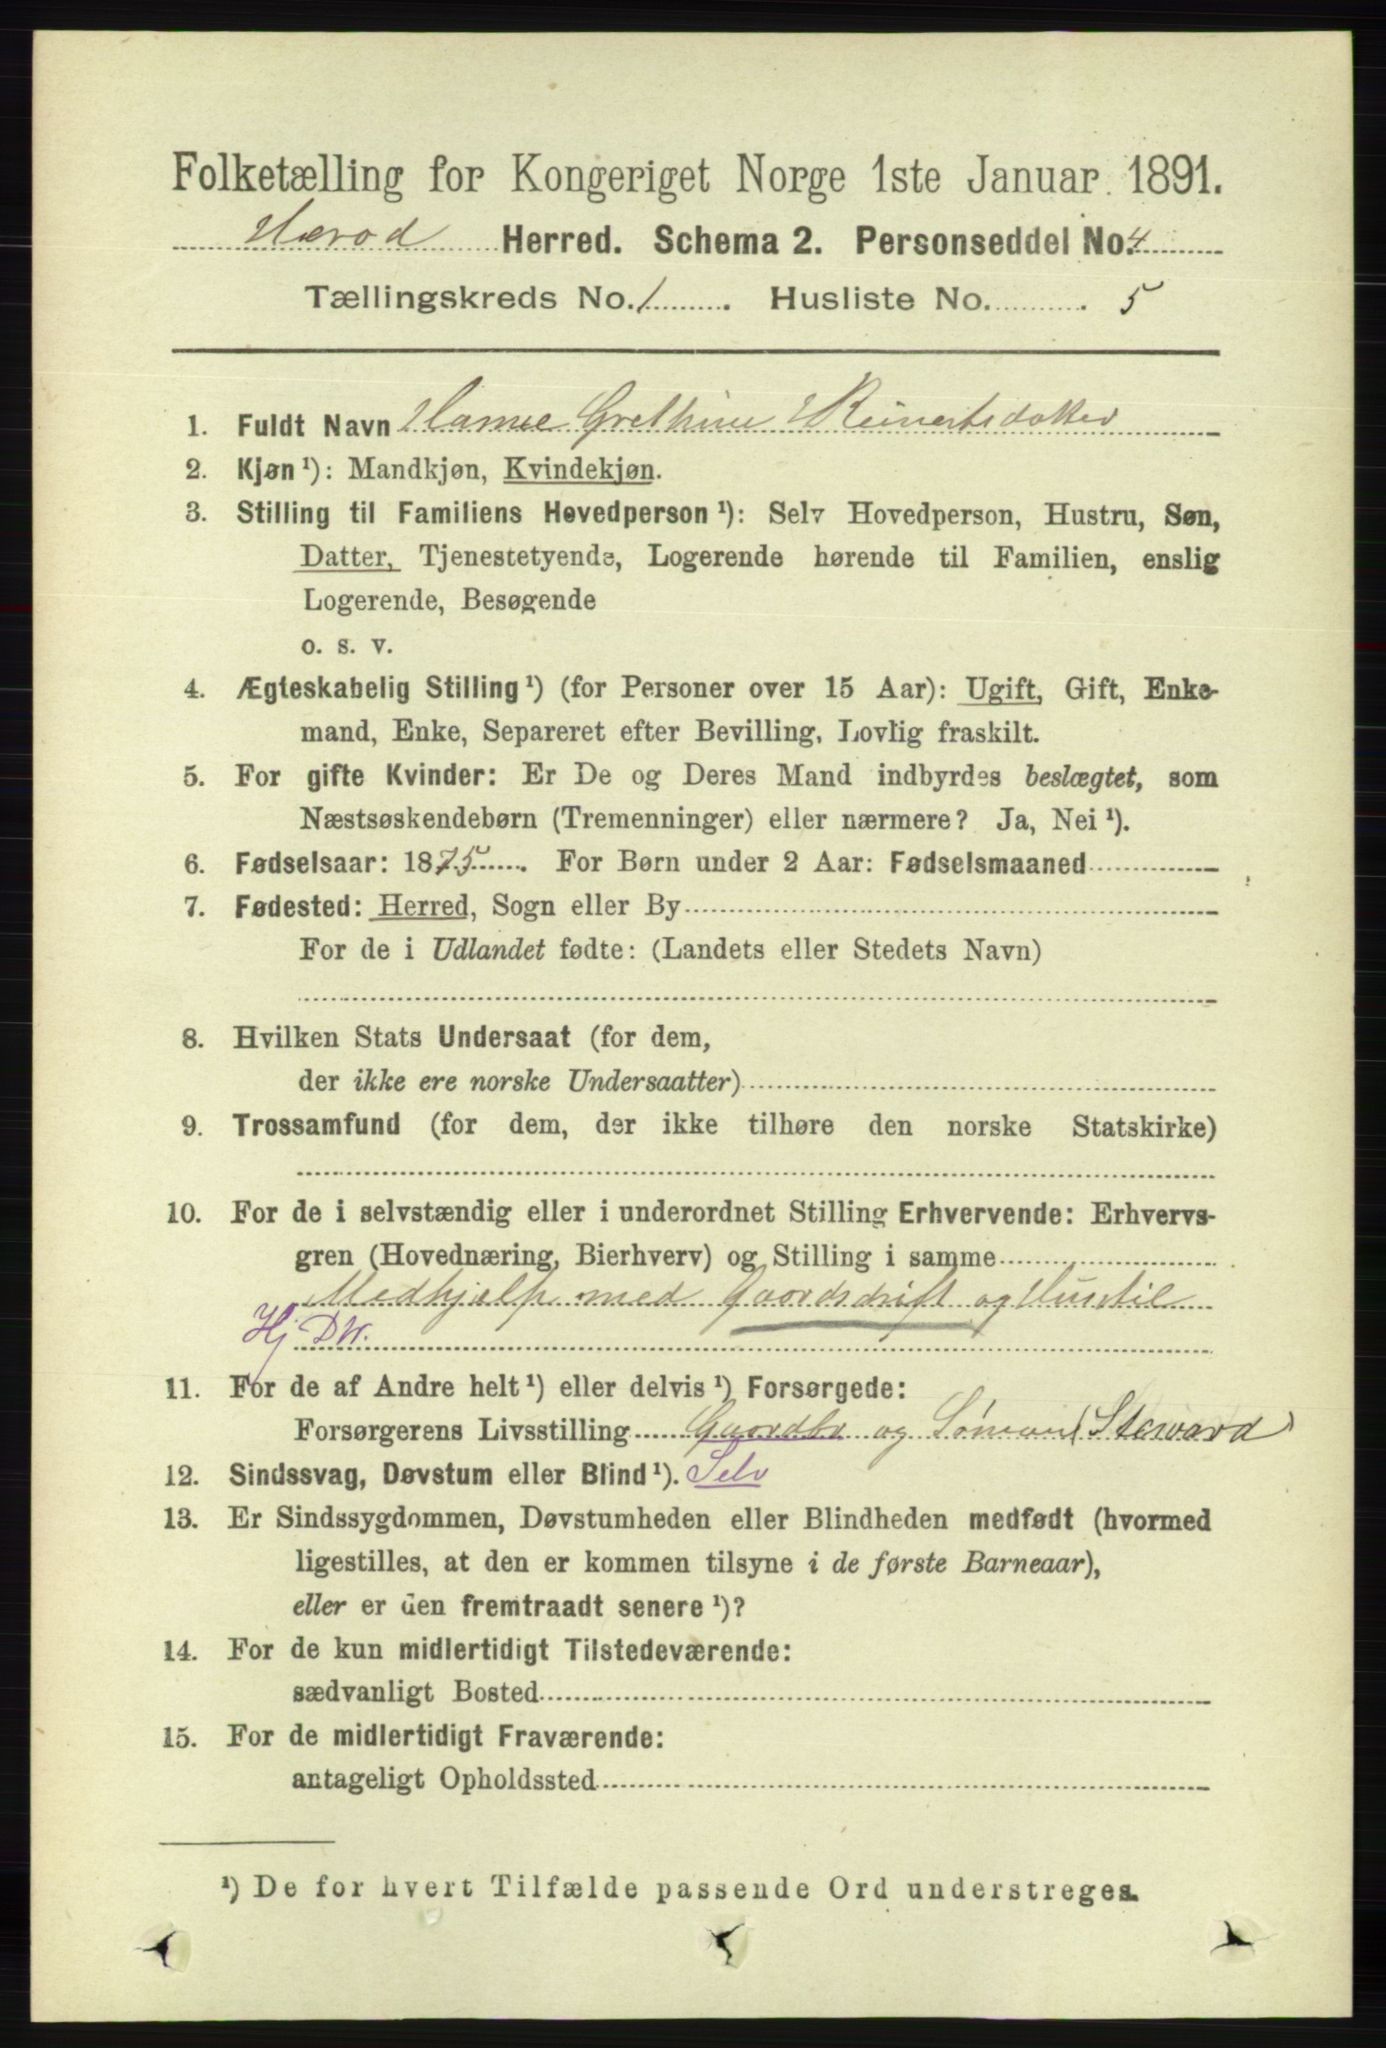 Folketælling for Kongeriget Norge 1ste Januar 1891.
Herod Herred. Schema 2. Personseddel No. 4
Tællingskreds No. 1. Husliste No. 5
1. Fuldt Navn Hanne Grethine Reinertsdatter
2. Kjøn ¹): Mandkjøn, Kvindekjøn.
3. Stilling til Familiens Hovedperson ¹): Selv Hovedperson, Hustru, Søn,
Datter, Tjenestetyende, Logerende hørende til Familien, enslig
Logerende, Besøgende
o. s. v.
4. Ægteskabelig Stilling ¹) (for Personer over 15 Aar): Ugift, Gift, Enke-
mand, Enke, Separeret efter Bevilling, Lovlig fraskilt.
5. For gifte Kvinder: Er De og Deres Mand indbyrdes beslægtet, som
Næstsøskendebørn (Tremenninger) eller nærmere? Ja, Nei ¹).
6. Fødselsaar: 1875. For Børn under 2 Aar: Fødselsmaaned
7. Fødested: Herred, Sogn eller By
For de i Udlandet fødte: (Landets eller Stedets Navn)
8. Hvilken Stats Undersaat (for dem,
der ikke ere norske Undersaatter)
9. Trossamfund (for dem, der ikke tilhøre den norske Statskirke)
10. For de i selvstændig eller i underordnet Stilling Erhvervende: Erhvervs-
gren (Hovednæring, Bierhverv) og Stilling i samme
Medhjælp med Gaardsdrift og Husstil
Hj
11. For de af Andre helt ¹) eller delvis ¹) Forsørgede:
Forsørgerens Livsstilling Gaardbr og Sømand (Steward)
12. Sindssvag, Døvstum eller Blind ¹). Selv
13. Er Sindssygdommen, Døvstumheden eller Blindheden medfødt (hvormed
ligestilles, at den er kommen tilsyne i de første Barneaar),
eller er den fremtraadt senere ¹)?
14. For de kun midlertidigt Tilstedeværende:
sædvanligt Bosted
15. For de midlertidigt Fraværende:
antageligt Opholdssted
¹) De for hvert Tilfælde passende Ord understreges.